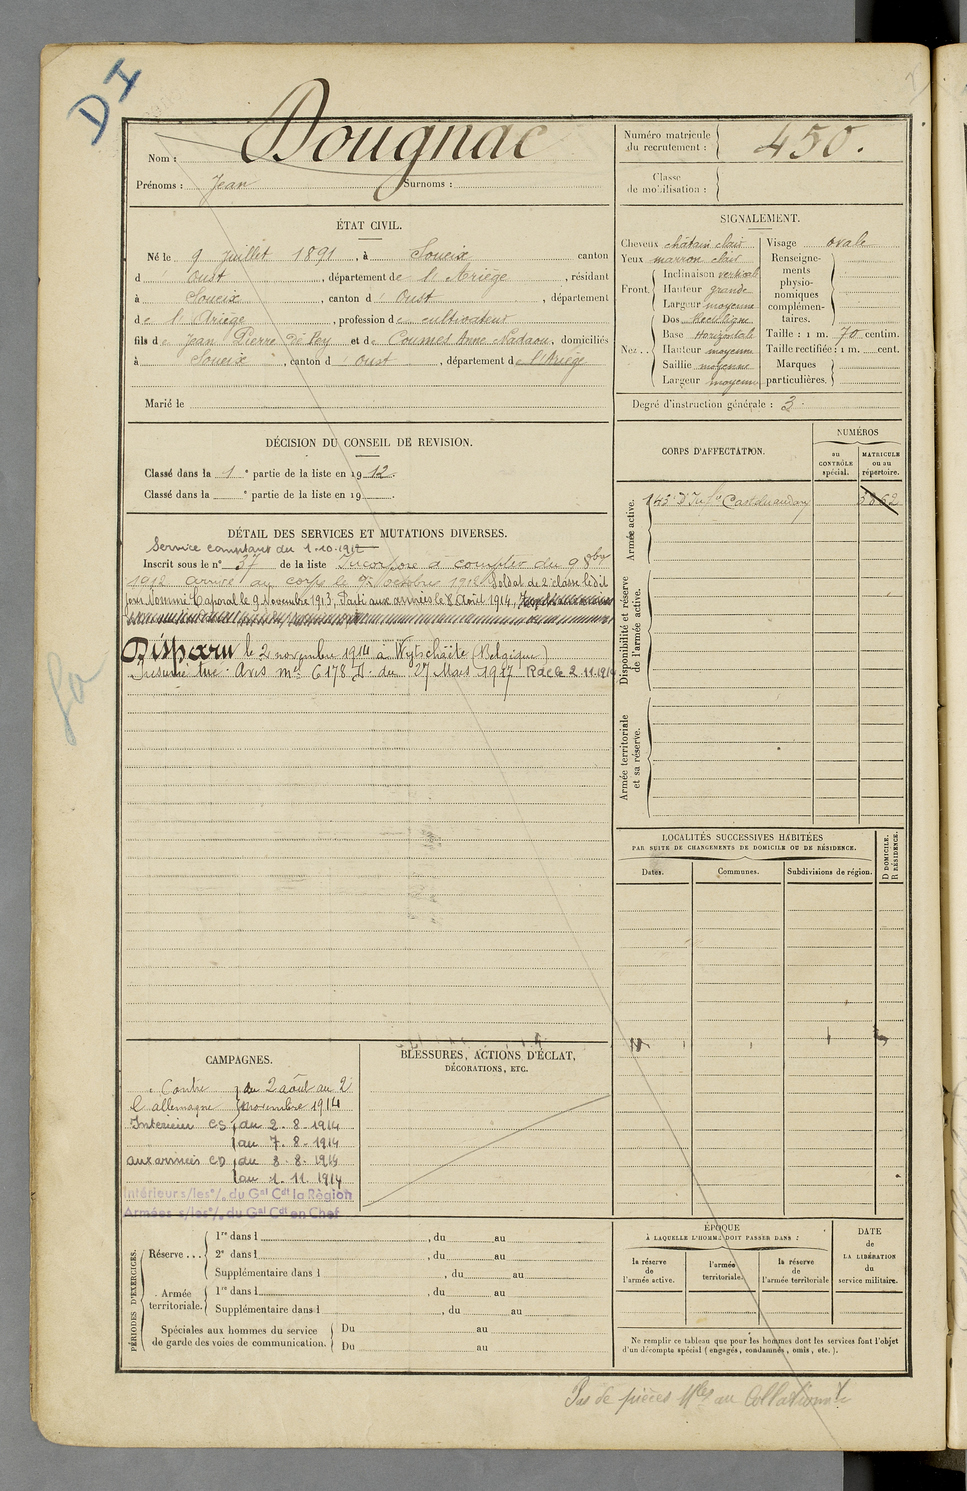 DI
Nom : Dougnac
Prénoms : Jean Surnoms :
Numéro matricule du recrutement : 450.
Classe de mobilisation :
ÉTAT CIVIL.
Né le 9 juillet 1891, à Soueix canton
d' Oust, département de l'Ariège, résidant
à Soueix, canton d' Oust, département
de l'Ariège, profession de cultivateur
fils de Jean Pierre Dé Rey et de Coumes Anne Nadaou, domiciliés
à Soueix, canton d' Oust, département de l'Ariège
Marié le
SIGNALEMENT.
Cheveux châtain clair
Yeux marron clair
Front. Inclinaison vertical
Hauteur grande
Largeur moyenne
Nez .. Dos Rectiligne
Base Horizontale
Hauteur moyenne
Saillie moyenne
Largeur moyenne
Visage ovale
Renseignements physionomiques complémentaires.
Taille : 1 m. 70 centim.
Taille rectifiée : 1 m. cent.
Marques particulières.
Degré d'instruction générale : 3.
DÉCISION DU CONSEIL DE REVISION.
Classé dans la 1e partie de la liste en 1912.
Classé dans la e partie de la liste en 19 .
DÉTAIL DES SERVICES ET MUTATIONS DIVERSES.
Service comptant du 1-10-1912
Inscrit sous le n° 37 de la liste Incorporé à compter du 9 8bre
1912 arrivé au corps le dit octobre 1912 Soldat de 2e classe ledit
jour. Nommé Caporal le 9 Novembre 1913, Parti aux armées le 8 Août 1914,
Disparu le 2 novembre 1914 à Wytschäete (Belgique)
Présumé tué. Avis mel 6178 D. du 27 Mars 1917 R de C le 2.11.1914
CORPS D'AFFECTATION.
NUMÉROS
au CONTRÔLE spécial.
MATRICULE ou au répertoire.
Armée active.
143e d'Infie Castelnaudary 3862
Disponibilité et réserve de l'armée active.
Armée territoriale et sa réserve.
LOCALITÉS SUCCESSIVES HABITÉES
PAR SUITE DE CHANGEMENTS DE DOMICILE OU DE RÉSIDENCE.
Dates.
Communes.
Subdivisions de région.
D DOMICILE.
R RÉSIDENCE.
CAMPAGNES.
Contre du 2 août au 2
l'allemagne novembre 1914
Intérieur CS du 2.8.1914
au 7.8.1914
aux armées CD du 8.8.1914
au 1.11.1914
Intérieur s/les o/s du Gal Cdt la Région
Armées s/les o/s du Gal Cdt en Chef
BLESSURES, ACTIONS D'ÉCLAT,
DÉCORATIONS, ETC.
PÉRIODES D'EXERCICES.
Réserve ... 1re dans l , du au
2e dans l , du au
Supplémentaire dans l , du au
Armée territoriale. 1re dans l , du au
Supplémentaire dans l , du au
Spéciales aux hommes du service de garde des voies de communication. Du au
Du au
ÉPOQUE
À LAQUELLE L'HOMME DOIT PASSER DANS :
la réserve de l'armée active.
l'armée territoriale.
la réserve de l'armée territoriale
DATE de LA LIBÉRATION du service militaire.
Ne remplir ce tableau que pour les hommes dont les services font l'objet
d'un décompte spécial (engagés, condamnés, omis, etc.).
Pas de pièces Mles au